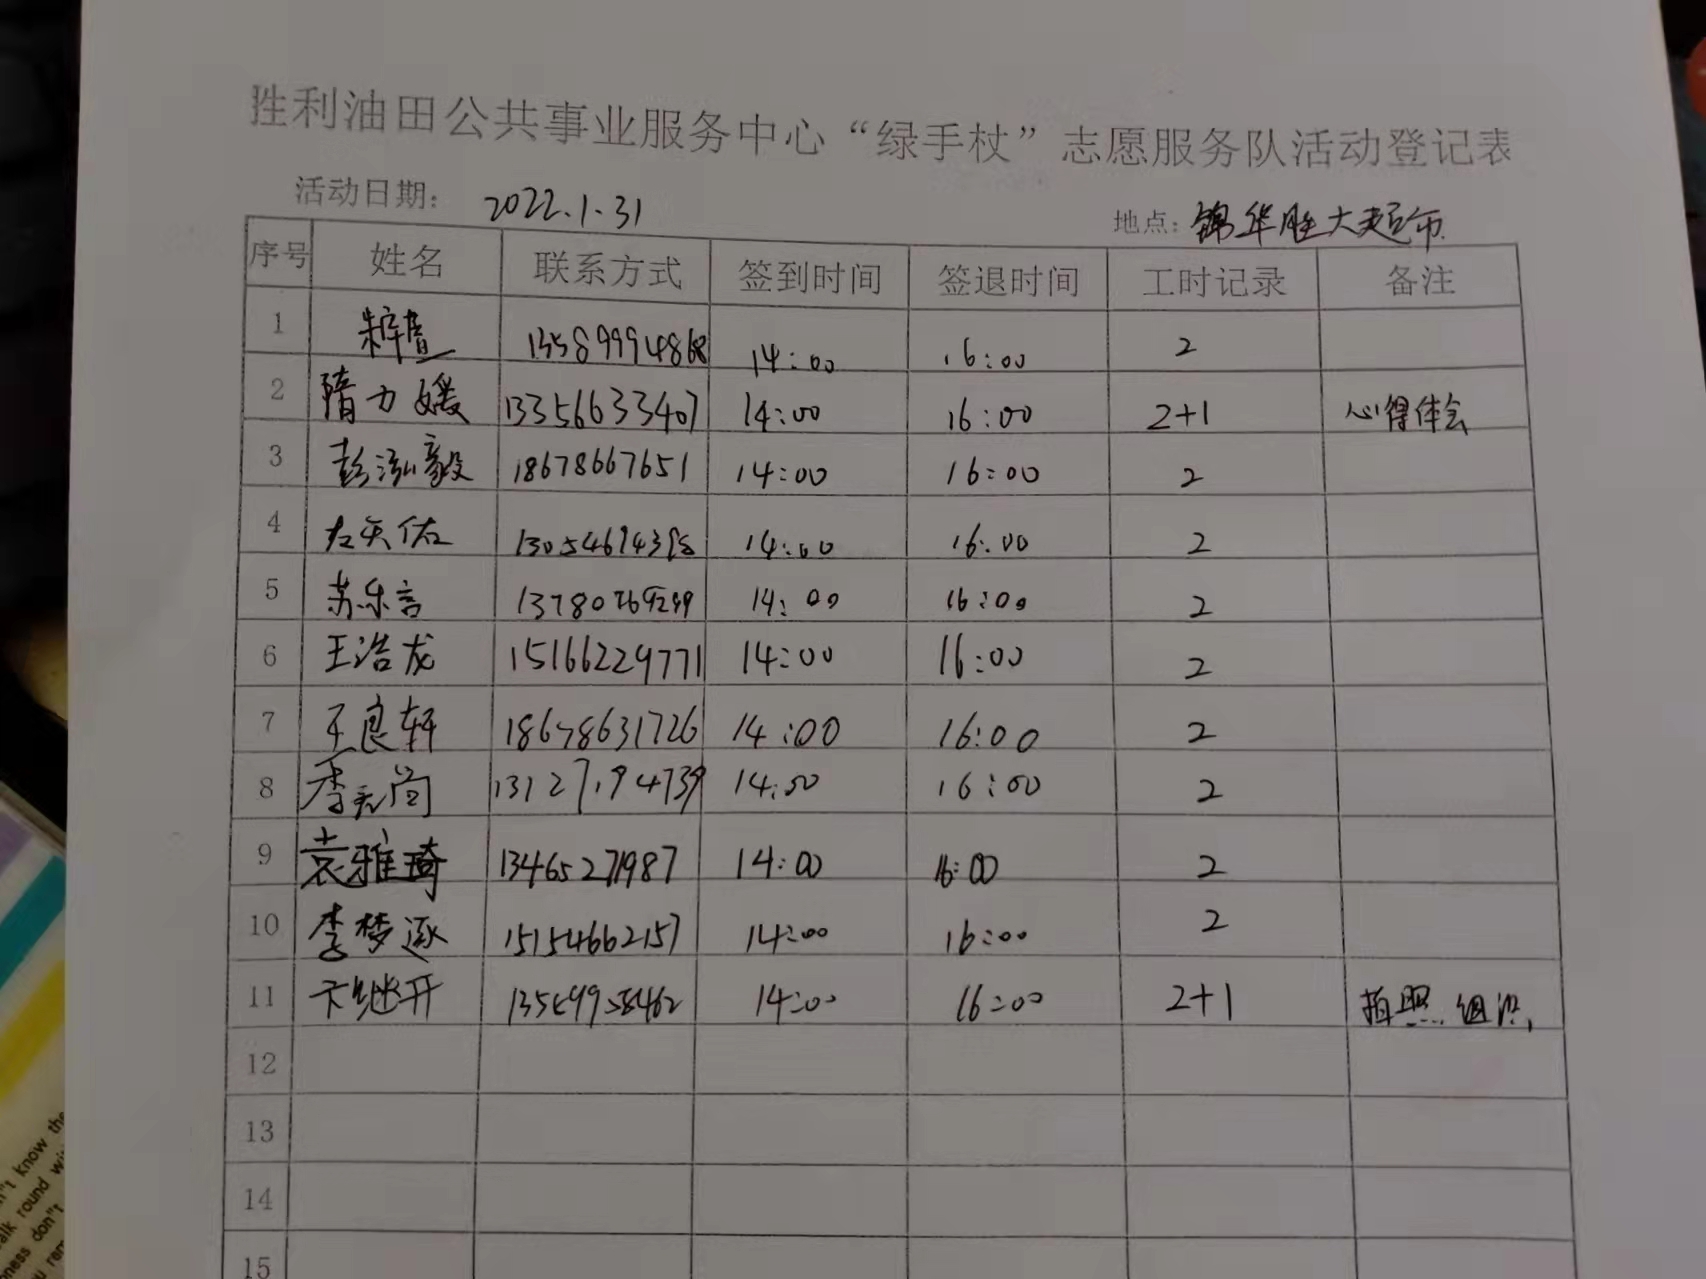 胜利油田公共事业服务中心“绿手杖”志愿服务队活动登记表
活动日期： 2022.1.31 地点：锦华胜大超市
序号 姓名 联系方式 签到时间 签退时间 工时记录 备注
1 14:00 16:00 2
2 隋力媛 13356633407 14:00 16:00 2+1 心得体会
3 彭泓毅 18678667651 14:00 16:00 2
4 左天佑 14:00 16:00 2
5 苏乐言 14:00 16:00 2
6 王浩龙 15166229771 14:00 16:00 2
7 王良轩 18678631726 14:00 16:00 2
8 13127194739 14:00 16:00 2
9 袁雅琦 13465271987 14:00 16:00 2
10 李梦逐 15154662157 14:00 16:00 2
11 卞继开 14:00 16:00 2+1 拍照
12
13
14
15